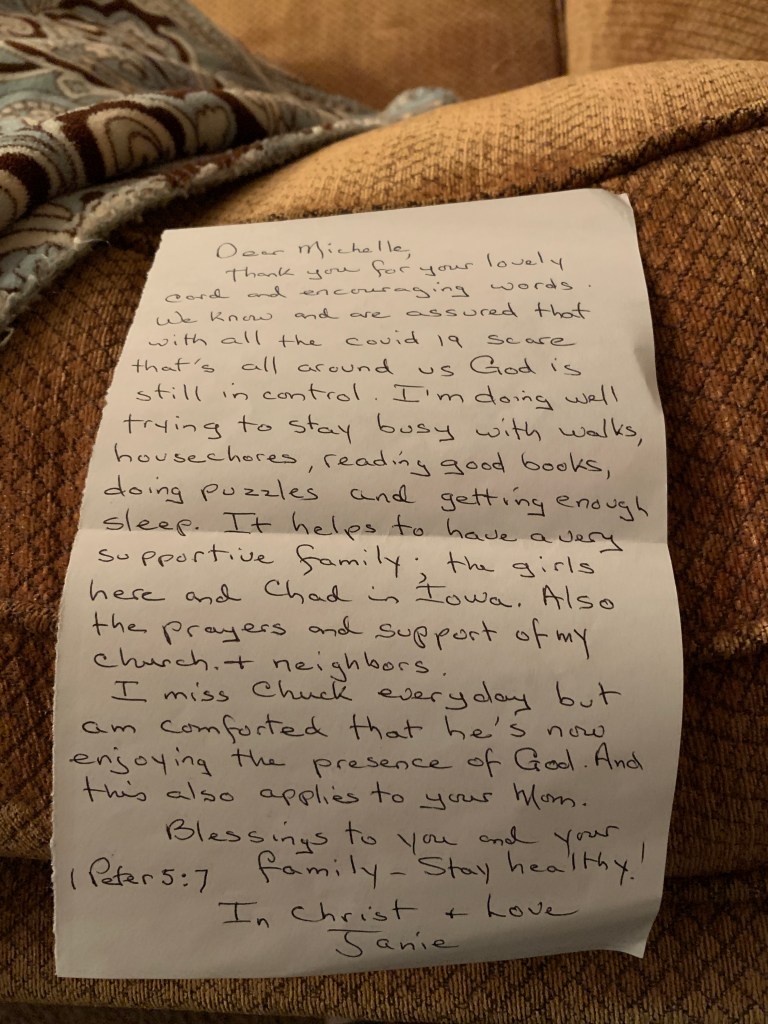 Dear Michelle,
Thank you for your lovely
card and encouraging words.
We know and are assured that
with all the covid 19 scare
that's all around us God is
still in control. I'm doing well
trying to stay busy with walks,
housechores, reading good books,
doing puzzles and getting enough
sleep. It helps to have a very
supportive family; the girls
here and Chad in Iowa. Also
the prayers and support of my
church. + neighbors.
I miss Chuck everyday but
am comforted that he's now
enjoying the presence of God. And
this also applies to your Mom.
Blessings to you and your
family - Stay healthy!
1 Peter 5:7
In Christ + Love
Janie